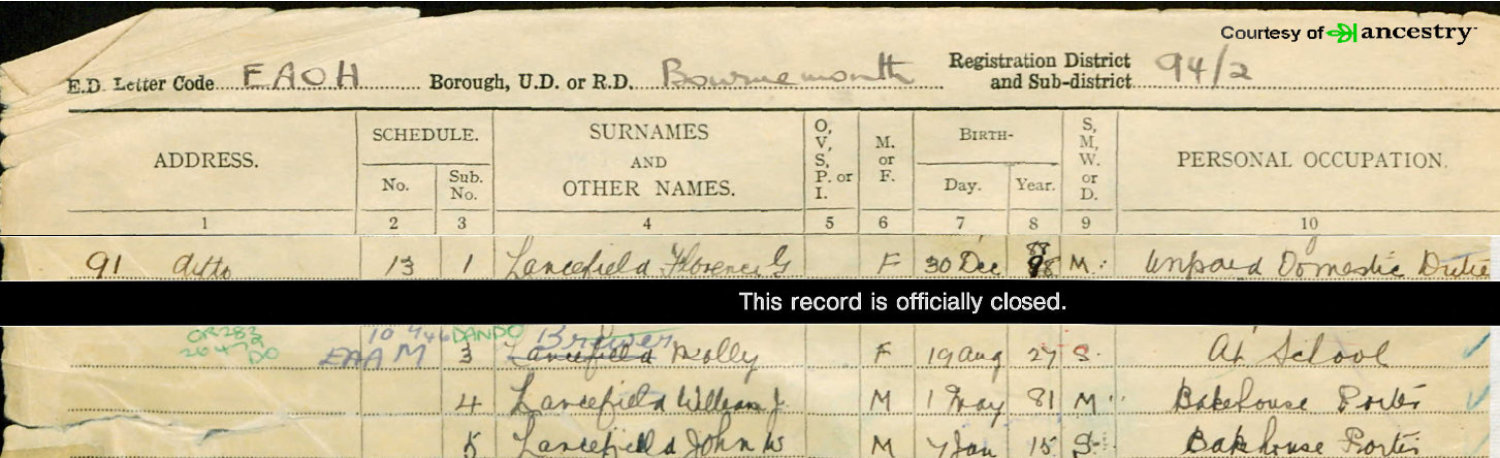 Courtesy of ancestry
E.D. Letter Code EAOH Borough, U.D. or R.D. Bournemouth Registration District and Sub-district 94/2
ADDRESS. SCHEDULE. No. Sub. No. SURNAMES AND OTHER NAMES. O, V, S, P. or I. M. or F. BIRTH- Day. Year. S, M, W. or D. PERSONAL OCCUPATION.
1 2 3 4 5 6 7 8 9 10
91 ditto 13 1 Lancefield Florence G F 30 Dec 98 88 M. Unpaid Domestic Dutie
This record is officially closed.
OR283 DO EAAM DANDO Brewer
3 Lancefield Molly F 19 Aug 27 S. At School
4 Lancefield William J. M 1 May 81 M Bakehouse Porter
5 Lancefield John W M 7 Jan 15 S Bakehouse Porter